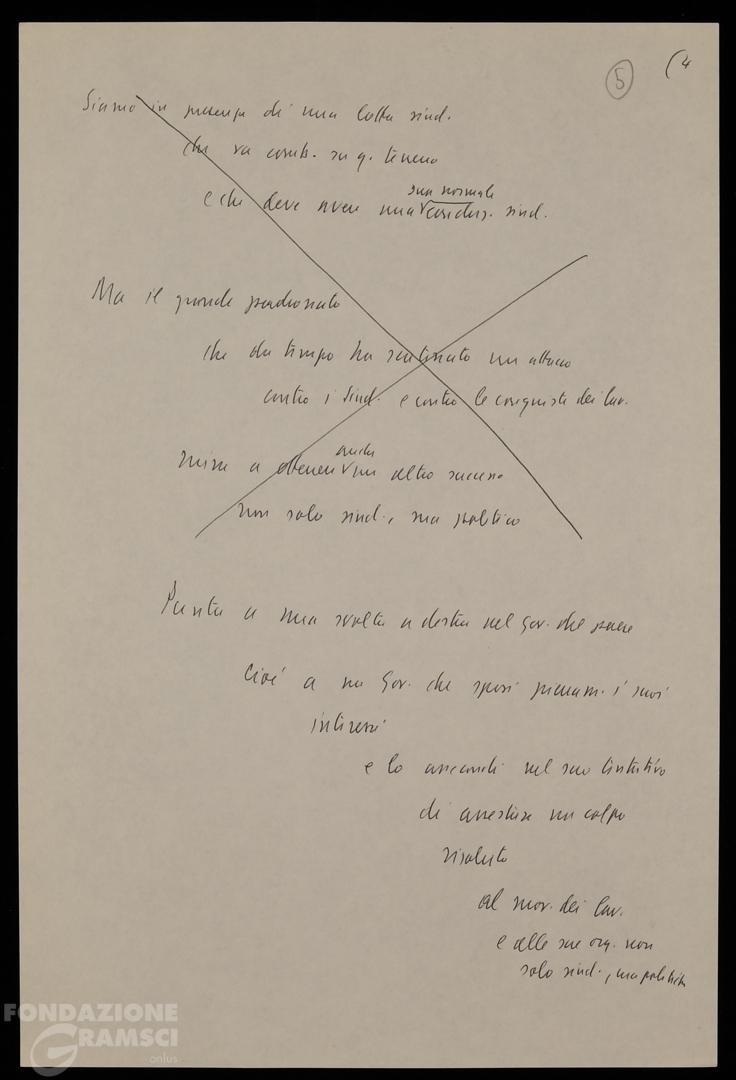 5
(4
Siamo in presenza di una lotta sind.
che va comb. su q. terreno
e che deve avere una sua normale conclus. sind.
Ma il grande padronato
che da tempo ha scatenato un attacco
contro i sind. e contro le conquiste dei lav.
mira a ottenere anche un altro successo
non solo sind., ma politico
Punta a una svolta a destra nel gov. del paese
Cioè a un Gov. che sposi pienam. i suoi
interessi
e lo assecondi nel suo tentativo
di assestare un colpo
risoluto
al mov. dei lav.
e alle sue org. non
solo sind., ma politiche
FONDAZIONE
GRAMSCI
onlus